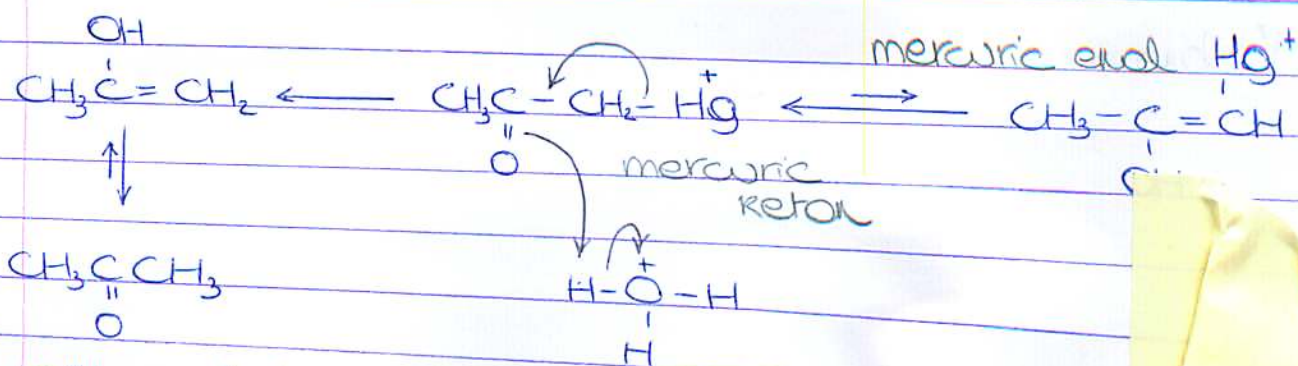 OH
CH₃C=CH₂ ← CH₃C-CH₂-Hg⁺ ⇌ CH₃-C=CH
mercuric enol Hg⁺
O
mercuric
keton
CH₃CCH₃
O
H-O⁺-H
H